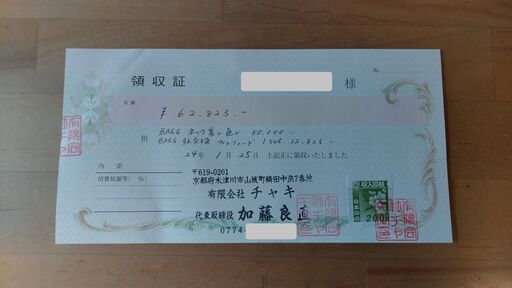 領収証
様
No
金額
¥ 62,823.-
但
BASS ネック差し直し 50,000.-
BASS 弦交換 1 set 12,823.-
24年 1月 25日 上記正に領収いたしました
内訳
消費税額等( %)
〒619-0201
京都府木津川市山城町綺田中浜7番地
有限会社 チャキ
代表取締役 加藤良直
0774-
収入印紙
200